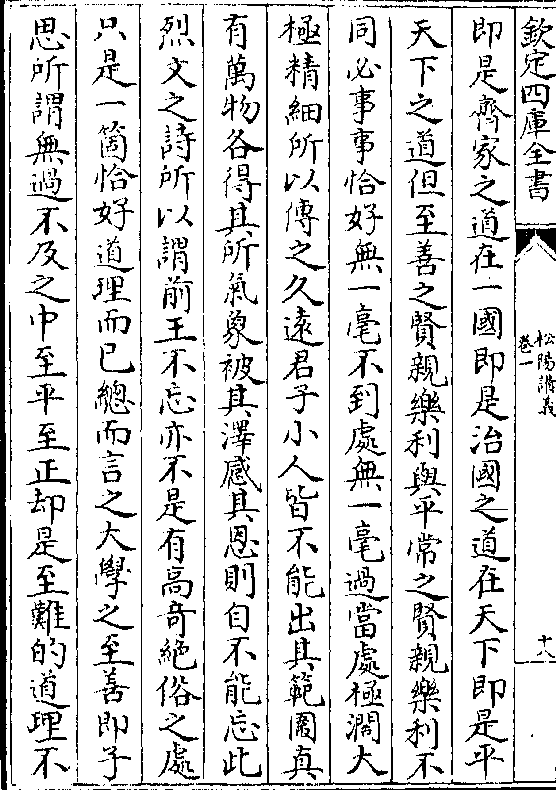 欽定四庫全書
松陽講義
卷一
十八
即是齊家之道在一國即是治國之道在天下即是平
天下之道但至善之賢親樂利與平常之賢親樂利不
同必事事恰好無一毫不到處無一毫過當處極濶大
極精細所以傳之久遠君子小人皆不能出其範圍真
有萬物各得其所氣象被其澤感其恩則自不能忘此
烈文之詩所以謂前王不忘亦不是有高奇絶俗之處
只是一箇恰好道理而已總而言之大學之至善即子
思所謂無過不及之中至平至正却是至難的道理不